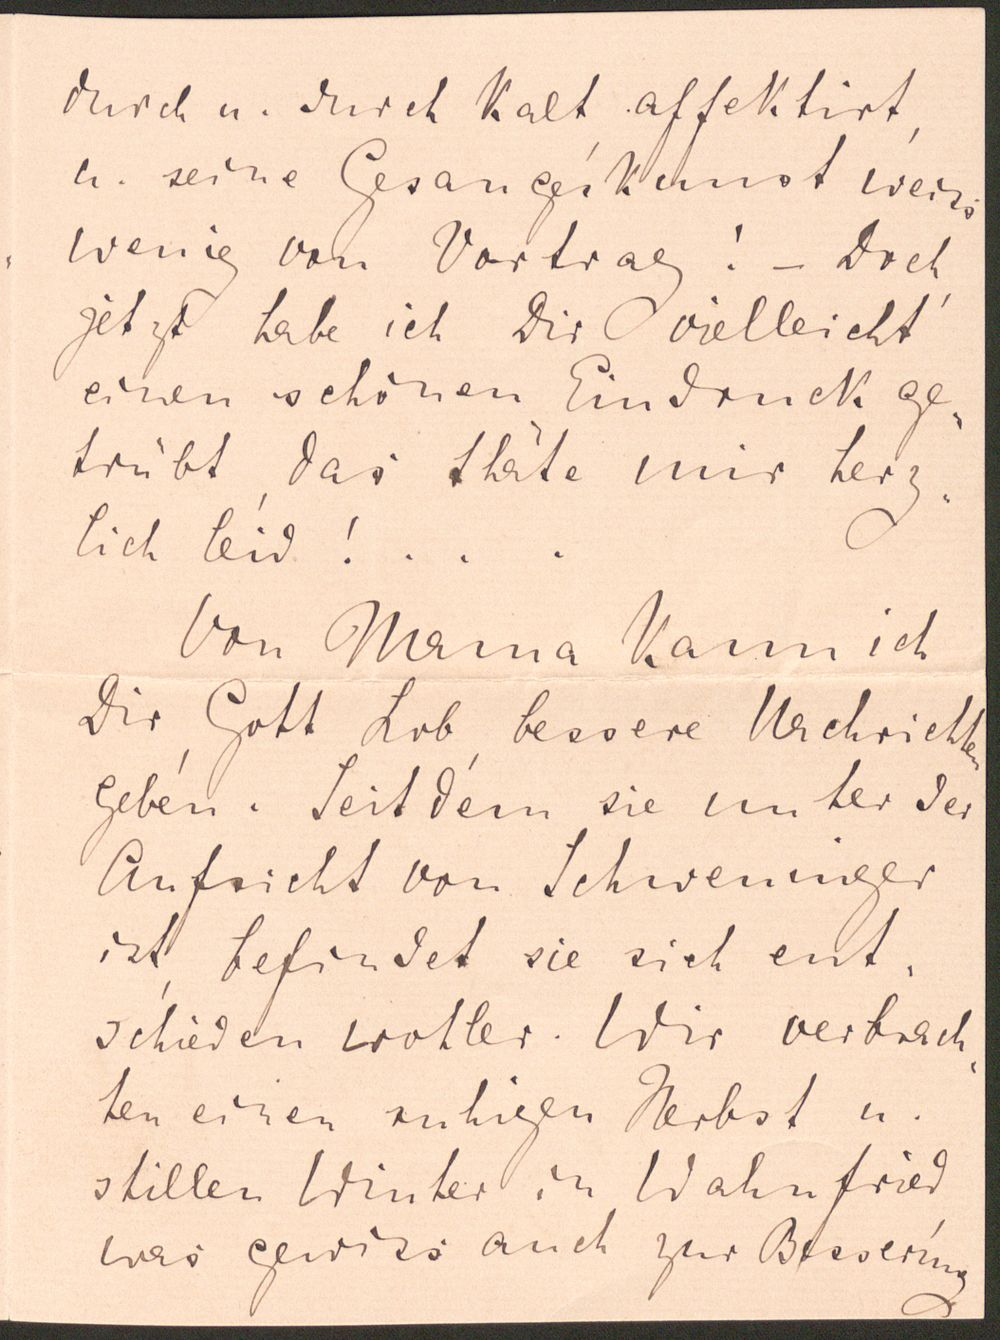 durch u. durch kalt affektirt,
u. seine Gesangeskunst weiss
wenig von Vortrag! – Doch,
jetzt habe ich Dir vielleicht
einen schönen Eindruck ge-
trübt, das thäte mir herz-
lich leid! . . .
Von Mama kann ich
Dir, Gott Lob, bessere Nachrichten
geben. Seitdem sie unter der
Aufsicht von Schweninger
ist, befindet sie sich ent-
schieden wohler. Wir verbrach-
ten einen ruhigen Herbst u.
stillen Winter in Wahnfried
was gewiss auch zur Besserung